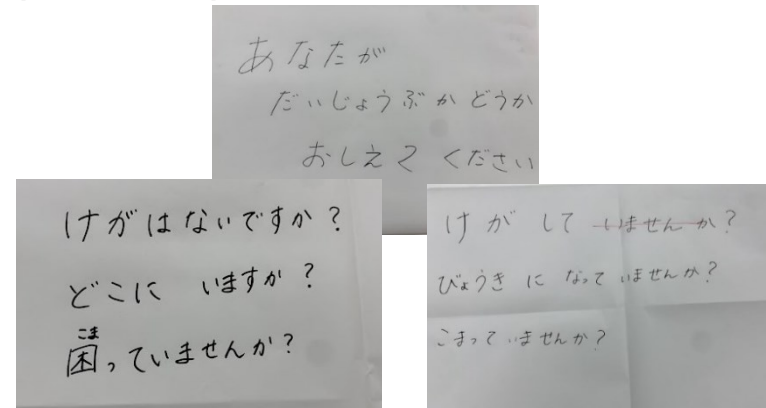 あなたが
だいじょうぶかどうか
おしえてください
けがはないですか？
どこに いますか？
こま
困っていませんか？
けが して いませんか？
びょうき に なって いませんか？
こまって いませんか？